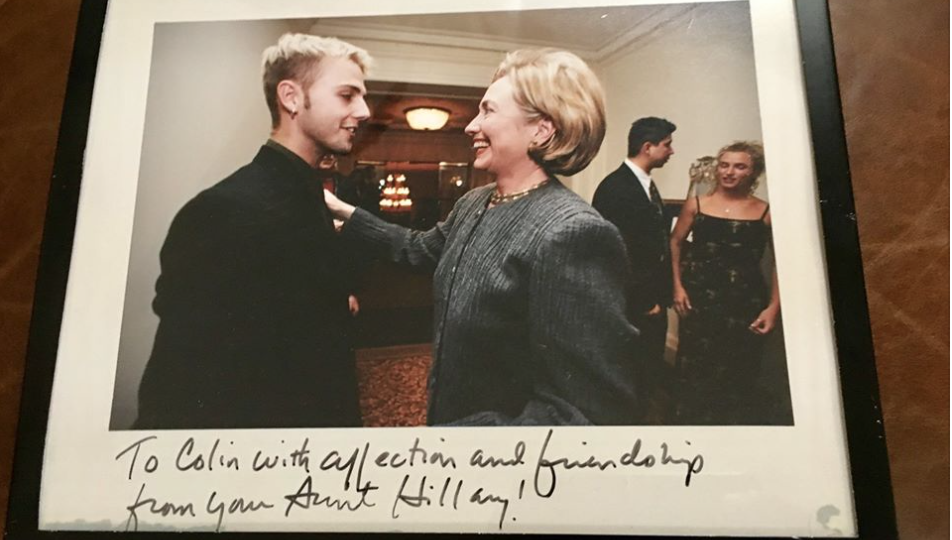 To Colin with affection and friendship
from your Aunt Hillary!